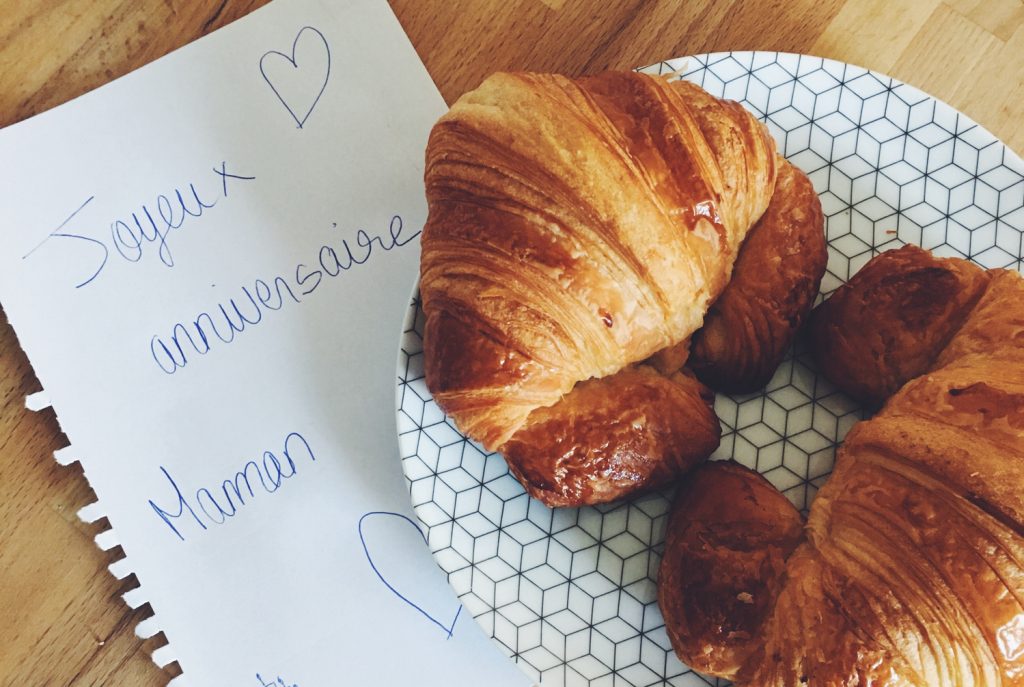 Joyeux
anniversaire
Maman